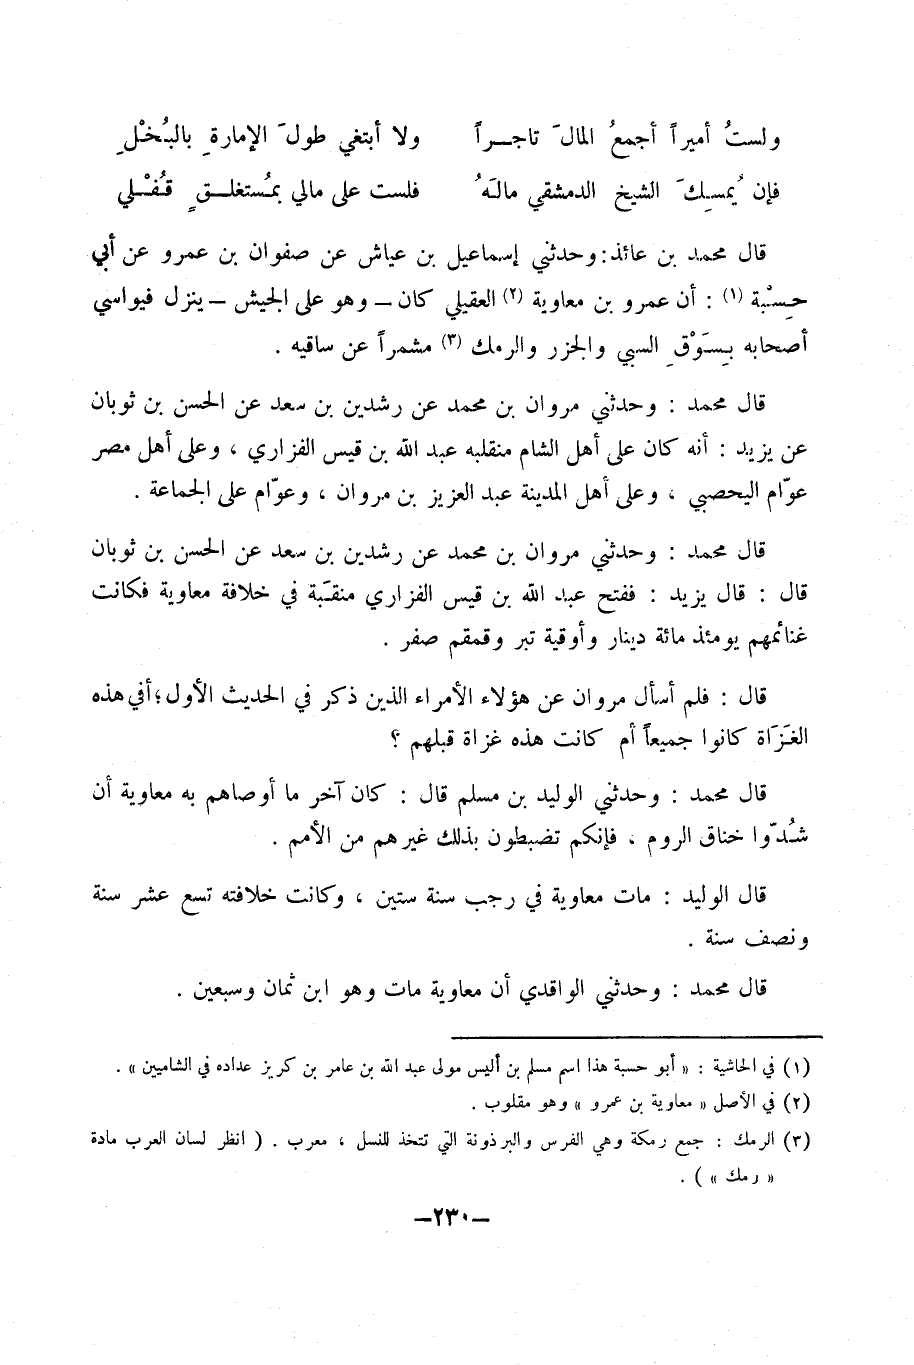 ولستُ أميراً أجمعُ المالَ تاجراً ولا أبتغي طولَ الإمارةِ بالبُخْلِ
فإن يُمسِكَ الشيخ الدمشقي مالَهُ فلست على مالي بمُستغلقٍ قُفْلي
قال محمد بن عائذ: وحدثني إسماعيل بن عياش عن صفوان بن عمرو عن أبي
حِسْبة (١) : أن عمرو بن معاوية (٢) العقيلي كان – وهو على الجيش – ينزل فيواسي
أصحابه بِسَوْقِ السبي والجزر والرمك (٣) مشمراً عن ساقيه .
قال محمد : وحدثني مروان بن محمد عن رشدين بن سعد عن الحسن بن ثوبان
عن يزيد : أنه كان على أهل الشام منقلبه عبد الله بن قيس الفزاري ، وعلى أهل مصر
عوّام اليحصبي ، وعلى أهل المدينة عبد العزيز بن مروان ، وعوّام على الجماعة .
قال محمد : وحدثني مروان بن محمد عن رشدين بن سعد عن الحسن بن ثوبان
قال : قال يزيد : ففتح عبد الله بن قيس الفزاري منقبّة في خلافة معاوية فكانت
غنائمهم يومئذ مائة دينار وأوقية تبر وقمقم صفر .
قال : فلم أسأل مروان عن هؤلاء الأمراء الذين ذكر في الحديث الأول ؛ أفي هذه
الغَزَاة كانوا جميعاً أم كانت هذه غزاة قبلهم ؟
قال محمد : وحدثني الوليد بن مسلم قال : كان آخر ما أوصاهم به معاوية أن
شُدّوا خناق الروم ، فإنكم تضبطون بذلك غيرهم من الأمم .
قال الوليد : مات معاوية في رجب سنة ستين ، وكانت خلافته تسع عشر سنة
ونصف سنة .
قال محمد : وحدثني الواقدي أن معاوية مات وهو ابن ثمان وسبعين .
(١) في الحاشية : « أبو حسبة هذا اسم مسلم بن أليس مولى عبد الله بن عامر بن كريز عداده في الشاميين » .
(٢) في الأصل « معاوية بن عمرو » وهو مقلوب .
(٣) الرمك : جمع رمكة وهي الفرس والبرذونة التي تتخذ للنسل ، معرب . ( انظر لسان العرب مادة
« رمك » ) .
–٢٣٠–